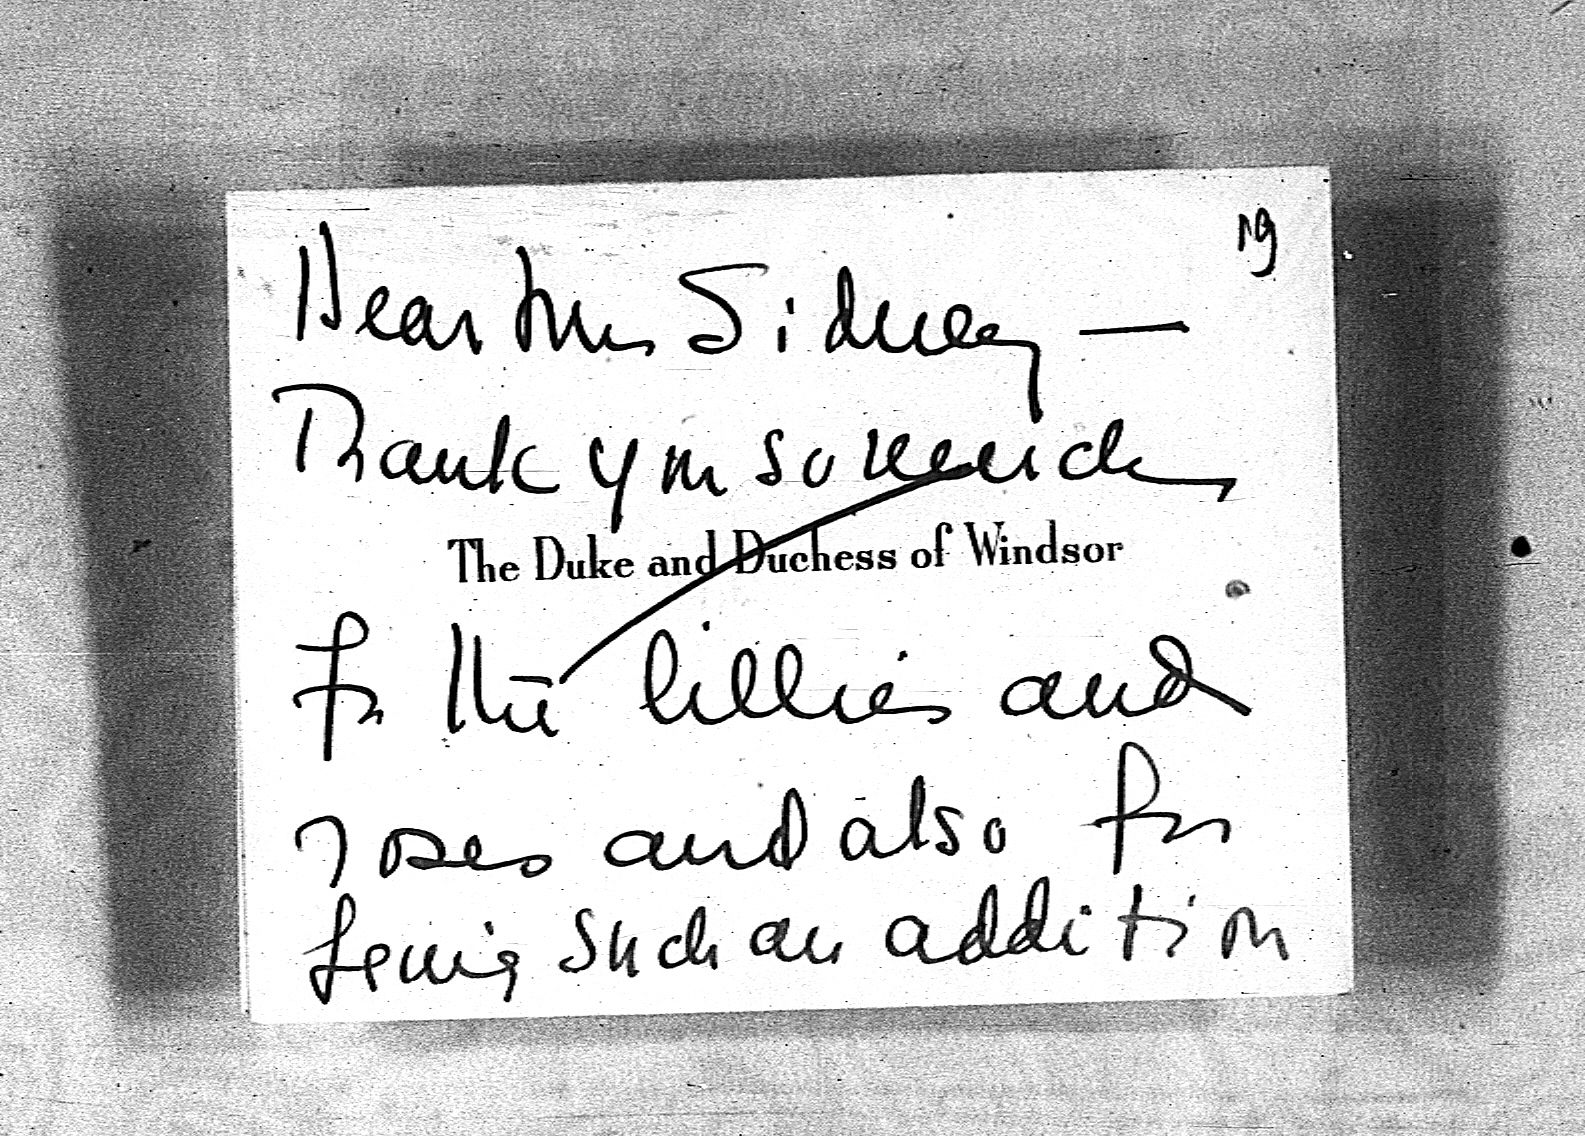 19
Dear Mr Sidney —
Thank you so much
The Duke and Duchess of Windsor
for the lillies and
roses and also for
being such an addition